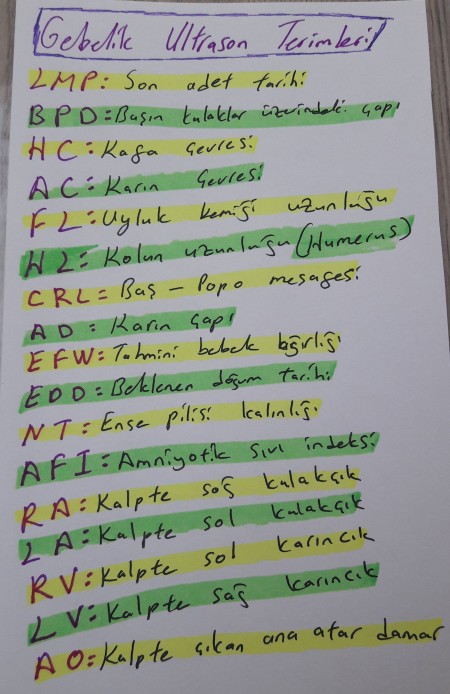 Gebelik Ultrason Terimleri
LMP: Son adet tarihi
BPD = Başın kulaklar üzerindeki çapı
HC: Kafa çevresi
AC: Karın çevresi
FL: Uyluk kemiği uzunluğu
HL: Kolun uzunluğu (Humerus)
CRL = Baş - Popo mesafesi
AD: Karın çapı
EFW: Tahmini bebek ağırlığı
EDD: Beklenen doğum tarihi
NT: Ense pilisi kalınlığı
AFI: Amniyotik sıvı indeksi
RA: Kalpte sağ kulakçık
LA: Kalpte sol kulakçık
RV: Kalpte sol karıncık
LV: Kalpte sağ karıncık
AO: Kalpte çıkan ana atar damar